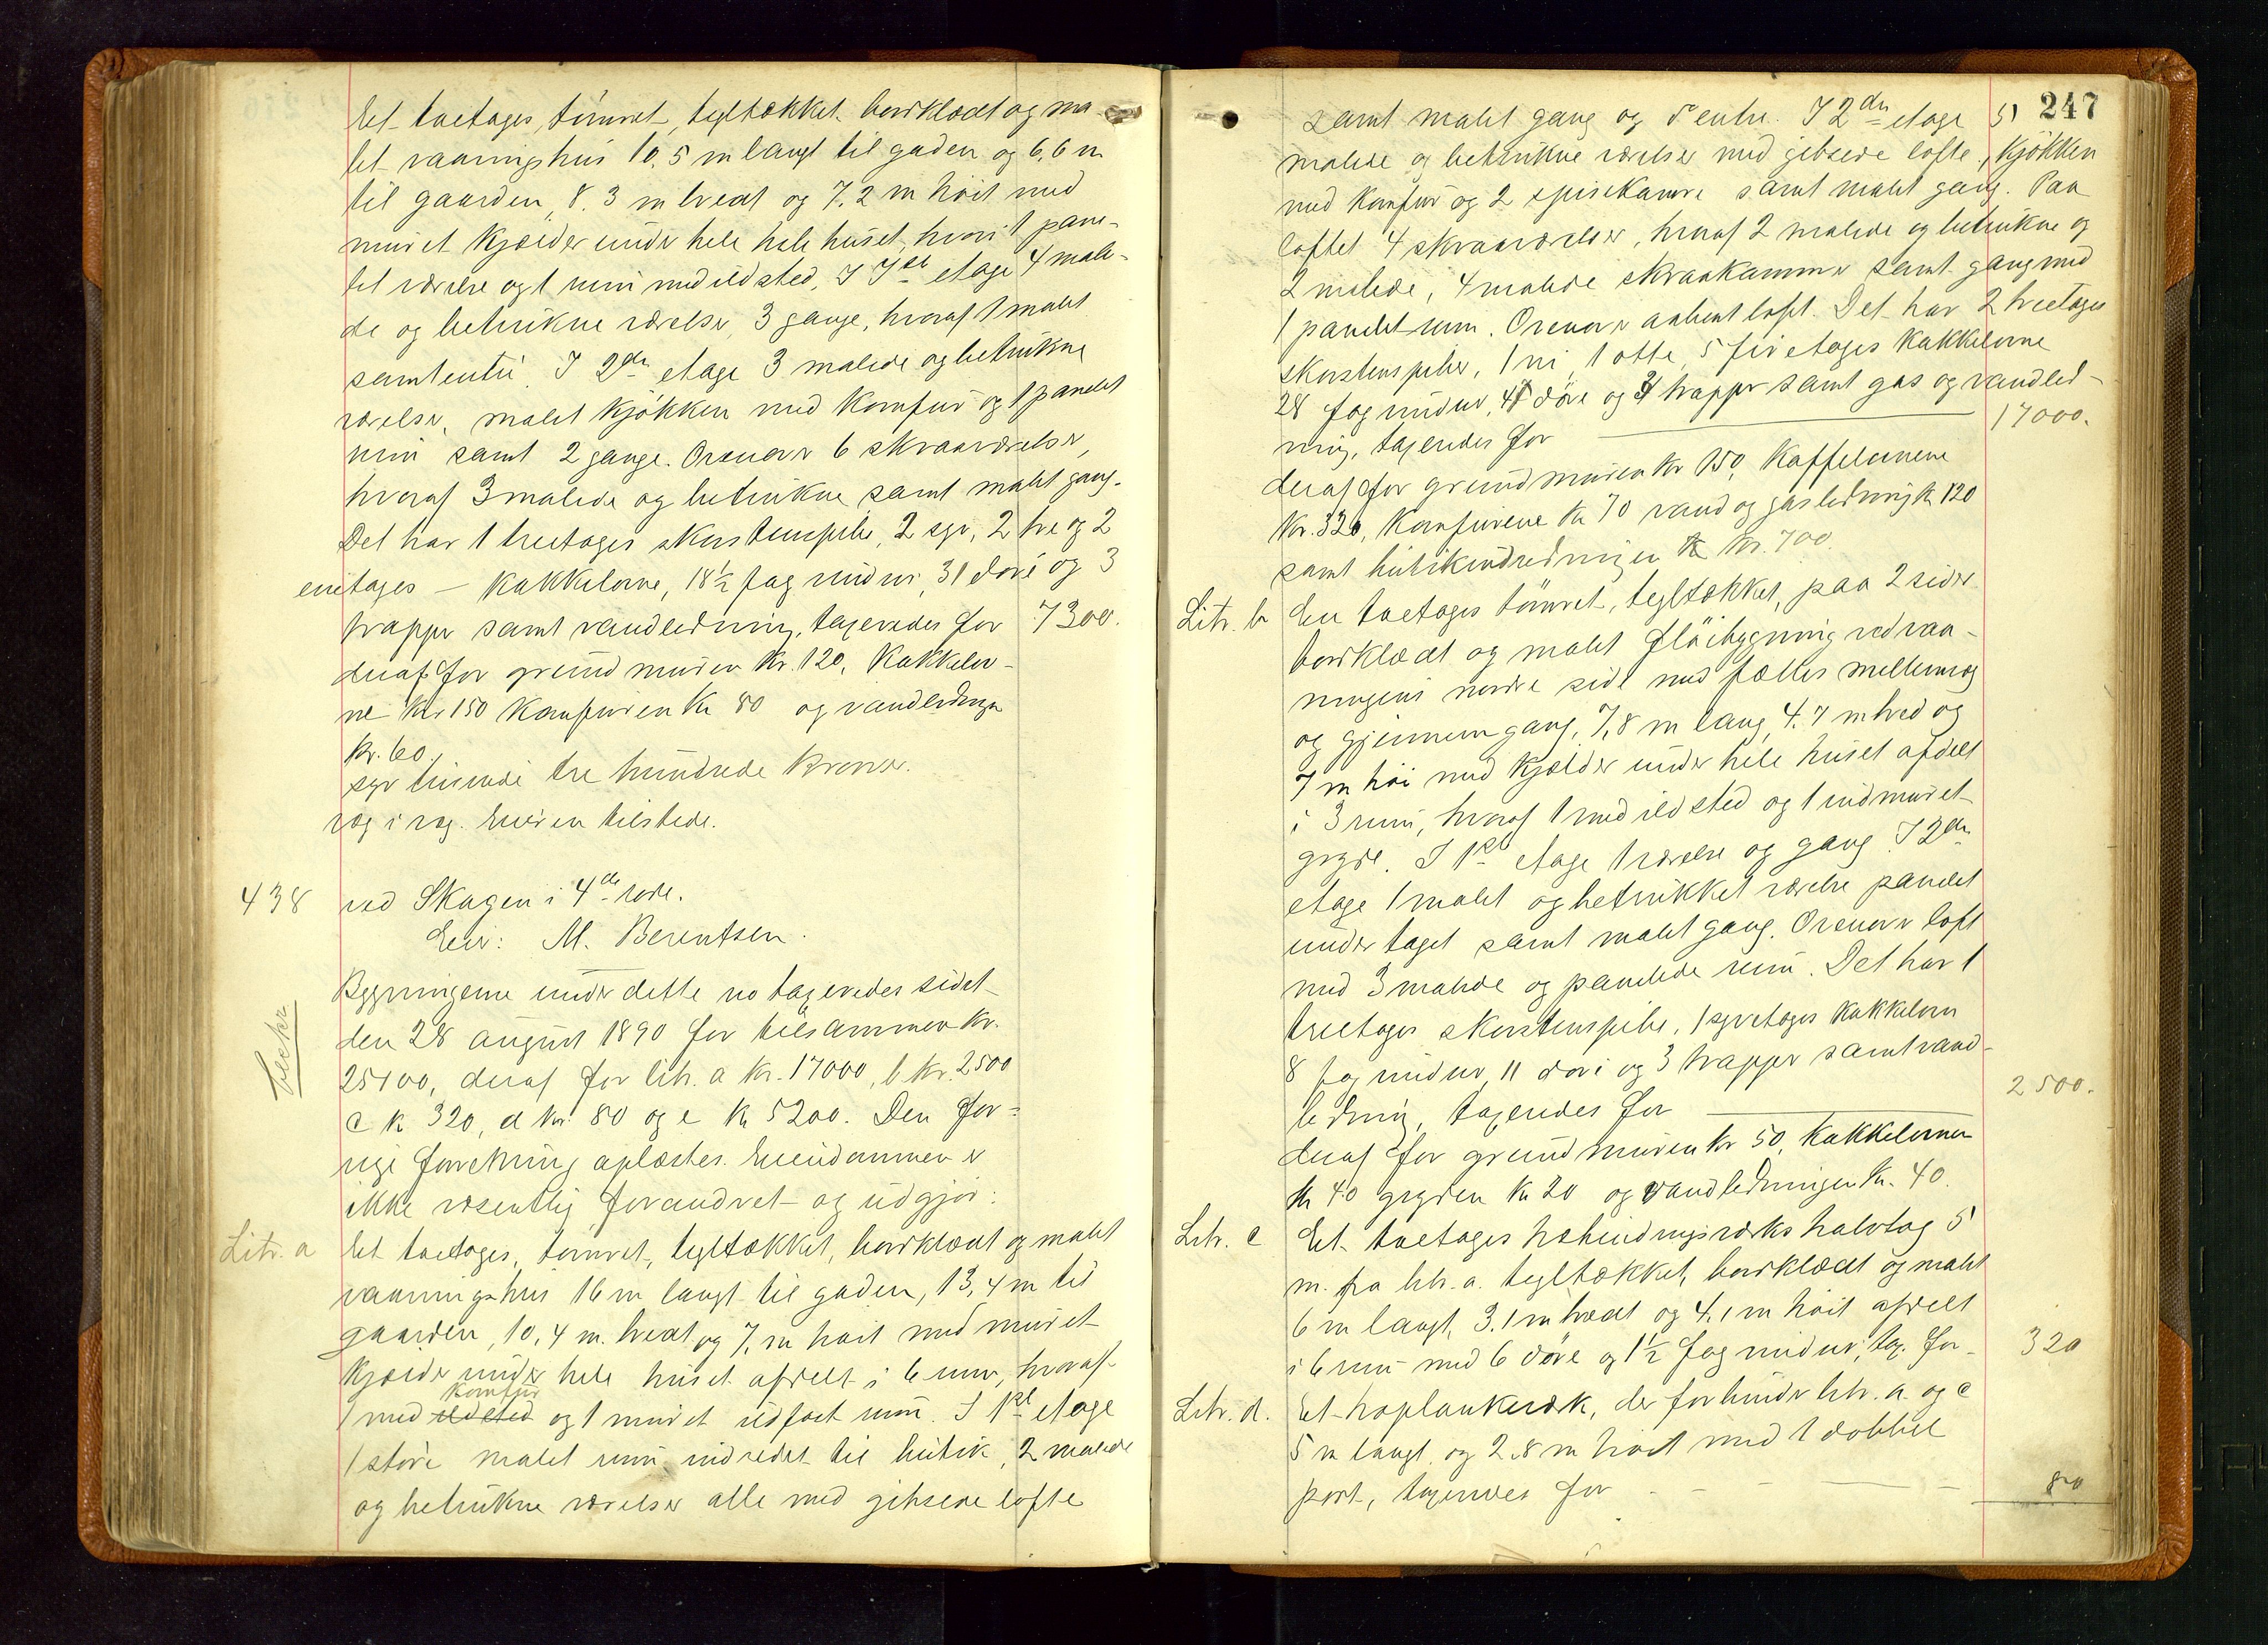 Et toetages, tömret, tegltækket bordklædt og ma-
let vaaningshus 10,5 m langt til gaden og 6,6 m
til gaarden, 8.3 m bredt og 7.2 m höit med
muret kjælder under hele hele huset, hvori 1 pane-
let værelse og 1 rum med ildsted. I 1ste etage 4 male-
de og betrukne værelser, 3 gange, hvoraf 1 malet
samt entré. I 2den etage 3 malede og betrukne
værelser, malet kjökken med komfur og 1 panelet
rum samt 2 gange. Ovenover 6 skraaværelser,
hvoraf 3 malede og betrukne samt malet gang.
Det har 1 treetages skorstenspibe, 2 syv, 2 tre og 2
enetages - kakkelovne, 18½ fag vinduer, 31 döre og 3
trapper samt vandledning, taxeredes for 7300.
deraf for grundmuren Kr. 120, Kakkelov-
ne Kr 150 komfuren Kr 80 og vandledningen
Kr. 60.
syv tusinde tre hundrede kroner.
væg i væg. Eieren tilstede.
438 ved Skagen i 4de rode.
Eier: M. Berentsen.
Bygningerne under dette no taxeredes sidst
den 28 august 1890 for tilsammen Kr.
25100, deraf for litr. a Kr. 17000, b Kr. 2500
c Kr 320, d Kr. 80 og e Kr 5200. Den for-
rige forretning oplæstes. Eiendommen er
ikke væsentlig forandret og udgjör:
Litr. a Et toetages, tömret, tegltækket, bordklædt og malet
vaaningshus 16 m langt til gaden, 13,4 m til
gaarden, 10,4 m. bredt og 7, m höit med muret
kjælder under hele huset afdelt i 6 rum, hvoraf
komfur
1 med ildsted og 1 muret ildfast rum. I 1ste etage
1 större malet rum indredet til butik, 2 malede
og betrukne værelser alle med gibsede lofte
247
samt malet gang og entre. I 2den etage 5
malede og betrukne værelser med gibsede lofte, kjökken
med komfur og 2 spisekamre samt malet gang. Paa
loftet 4 skraaværelser, hvoraf 2 malede og betrukne og
2 malede, 4 malede skraakammer samt gang med
1 panelet rum. Ovenover aabent loft. Det har 2 treetages
skorstenspiber, 1 ni, 1 otte, 5 fireetages kakkelovne
28 fag vinduer, 41 döre og 3 trapper samt gas og vandled-
ning, taxeredes for 17000.
deraf for grundmuren Kr 150, Kaffelovnene
Kr. 320, komfurene Kr 70 vand og gasledning Kr 120
samt butikindredningen Kr. 700.
Litr. b En toetages tömret, tegltækket, paa 2 sider
bordklædt og malet flöibygning ved vaa-
ningens nordre side med fælles mellemvæg
og gjennemgang, 7,8 m lang, 4.7 m bred og
7 m höi med kjælder under hele huset afdelt
i 3 rum, hvoraf 1 med ildsted og 1 indmuret
gryde. I 1ste etage 1 værelse og gang. I 2den
etage 1 malet og betrukket værelse panelet
under taget samt malet gang. Ovenover loft
med 3 malede og panelede rum. Det har 1
treetages skorstenspibe, 1 syvetages kakkelovn
8 fag vinduer, 11 döre og 3 trapper samt vand-
ledning, taxeredes for 2500.
deraf for grundmuren Kr 50, kakkelovnen
Kr 40 gryden Kr 20 og vandledningen Kr. 40.
Litr. c Et toetages træbindingsværks halvtag 5
m. fra litr. a. tegltækket, bordklædt og malet
6 m langt, 3.1 m bredt og 4,1 m höit afdelt
i 6 rum med 6 döre og 1½ fag vinduer, tax. for 320
Litr. d. Et træplankeværk, der forbinder litr. a og c
5 m langt og 2,8 m höit med 1 dobbel
port, taxeredes for 80